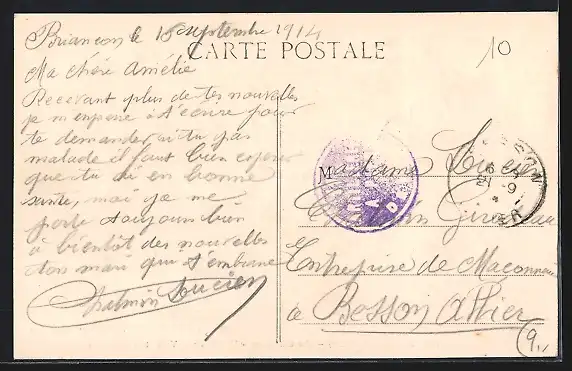 Briançon le 18 Septembre 1914
CARTE POSTALE
10
Ma chère Amélie
Recevant plus de tes nouvelles
je m'enpresse à t'écrire pour
te demander si tu pas
malade il faut bien espérer
que tu ai en bonne
santé, moi ja me
porte toujours bien
à bientôt des nouvelles
ton mari qui t'embrasse
Lucien
Madame Lucien
Entreprise de Maconnerie
à Besson Allier
9